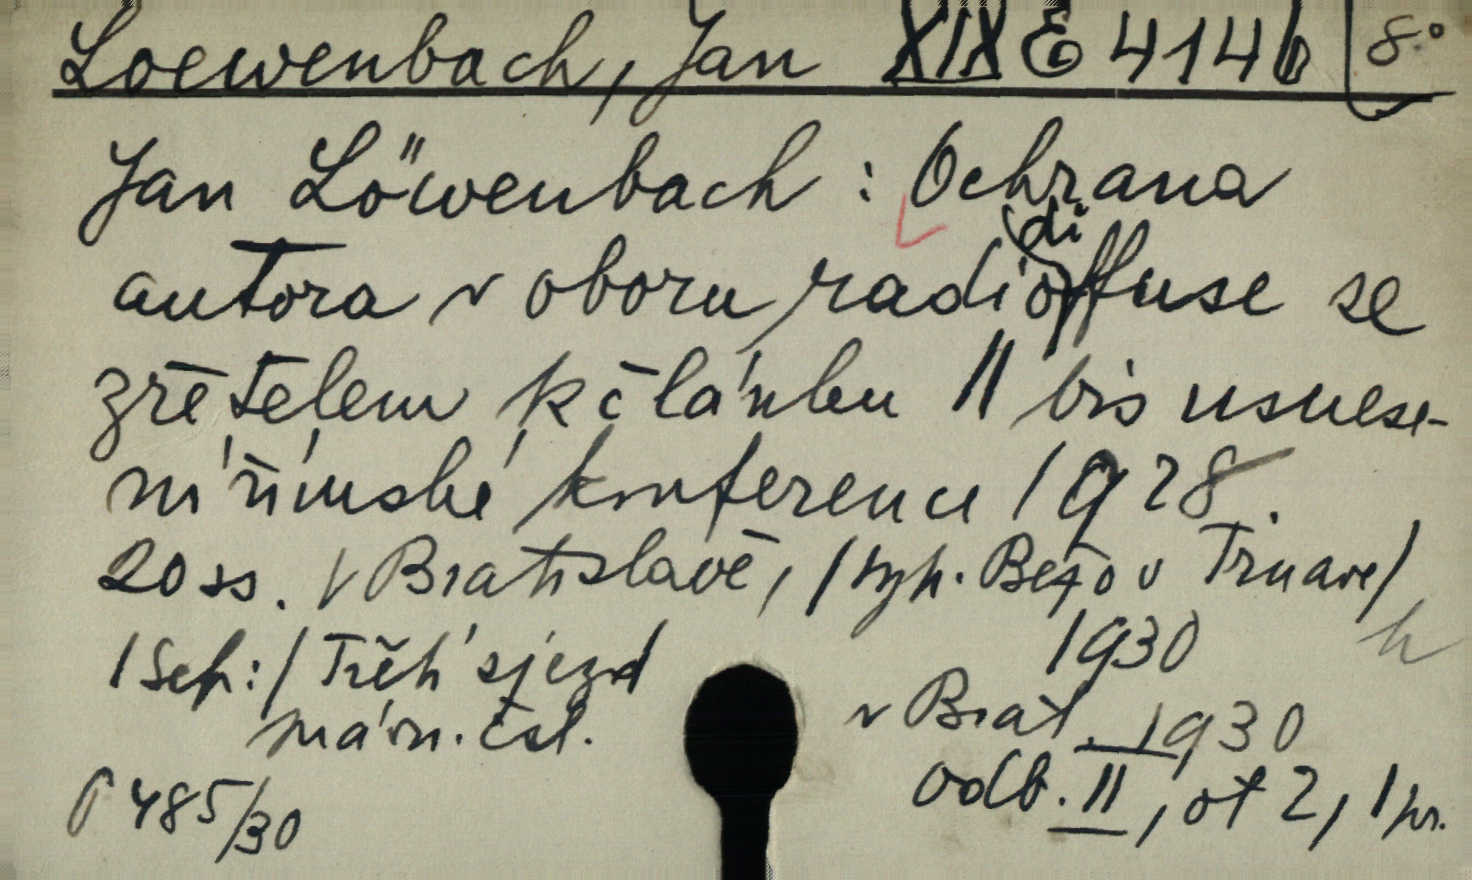 Loewenbach, Jan XIX E 4146 8°
Jan Löwenbach : Ochrana
autora v oboru radiodiffuse se
zřetelem k článku 11 bis usnese-
ní římské konference 1928.
20 ss. V Bratislavě, /typ. Bežo v Trnavě/
1930
/Sep:/ Třetí sjezd
právn. čsl.
v Brat. 1930
odb. II, ot 2, 1 pr.
485/30